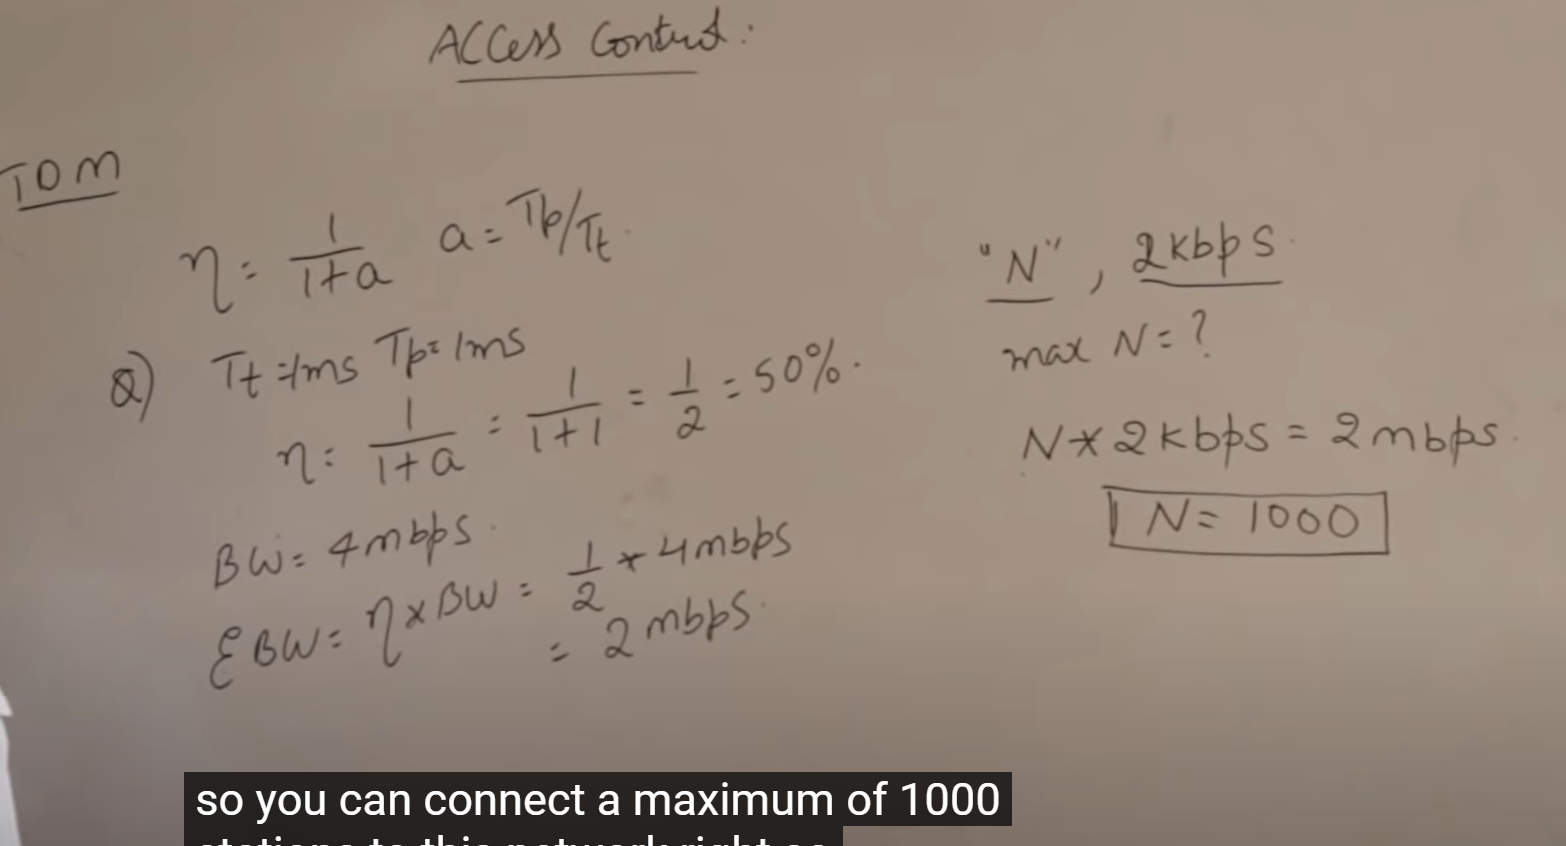 ACCess Control:
TDM
η = 1/(1+a) a = Tp/Tt
Q) Tt = 1ms Tp = 1ms
η = 1/(1+a) = 1/(1+1) = 1/2 = 50%.
BW = 4mbps
EBW = η × BW = 1/2 * 4mbps
= 2mbps
"N", 2kbps
max N = ?
N * 2kbps = 2mbps
N = 1000
so you can connect a maximum of 1000